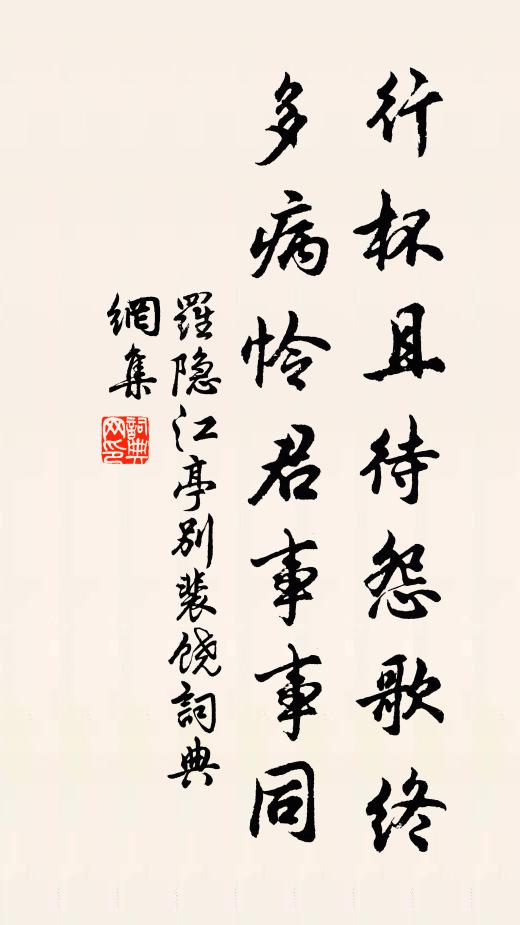 行杯且待怨歌终
多病怜君事事同
羅隐江亭别裴饶詞典
網集
詞典
网印